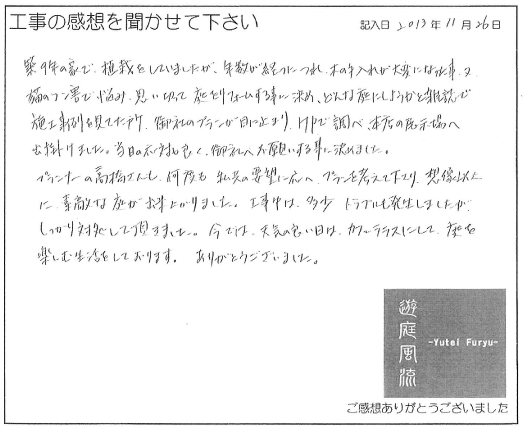 工事の感想を聞かせて下さい
記入日 2013年11月26日
築9年の家で、植栽をしていましたが、年数が経つにつれ、木の手入れが大変になった事、又
猫のフン害で悩み、思い切って庭をリフォームする事に決め、どんな庭にしようかと雑誌で
施工事例を見てた所、御社のプランが目に止まり、HPで調べ、本店の展示場へ
出掛けました。当日の応対も良く、御社へお願いする事に決めました。
プランナーの高橋さんも、何度も私共の要望に応へ、プランを考えて下さり、想像以上
に、素敵な庭が出来上がりました。工事中は、多少トラブルも発生しましたが、
しっかり対処して頂きました。今では、天気の良い日は、カフェテラスにして、庭を
楽しむ生活をしております。ありがとうございました。
遊庭風流
-Yutei Furyu-
ご感想ありがとうございました